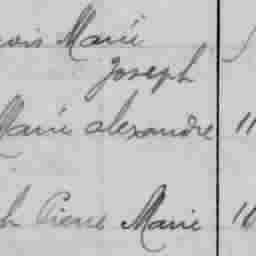 cois Marie
Joseph
Marie alexandre 11
h Pierre Marie 11